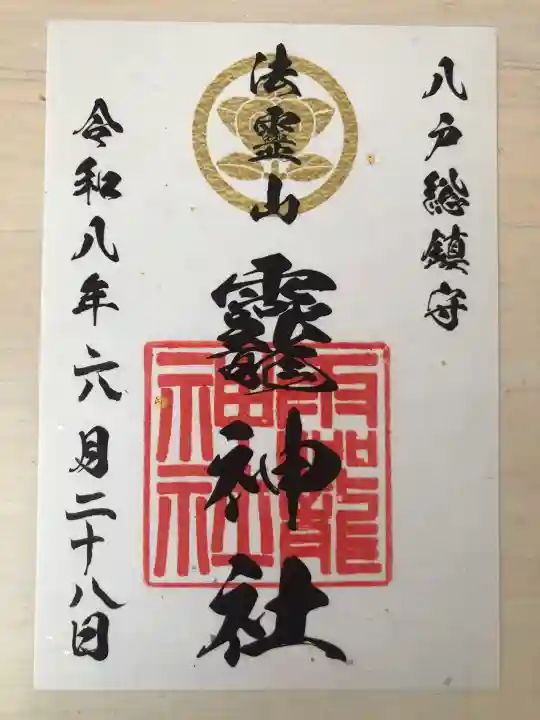 八戸総鎮守
法霊山
龗神社
令和八年六月二十八日